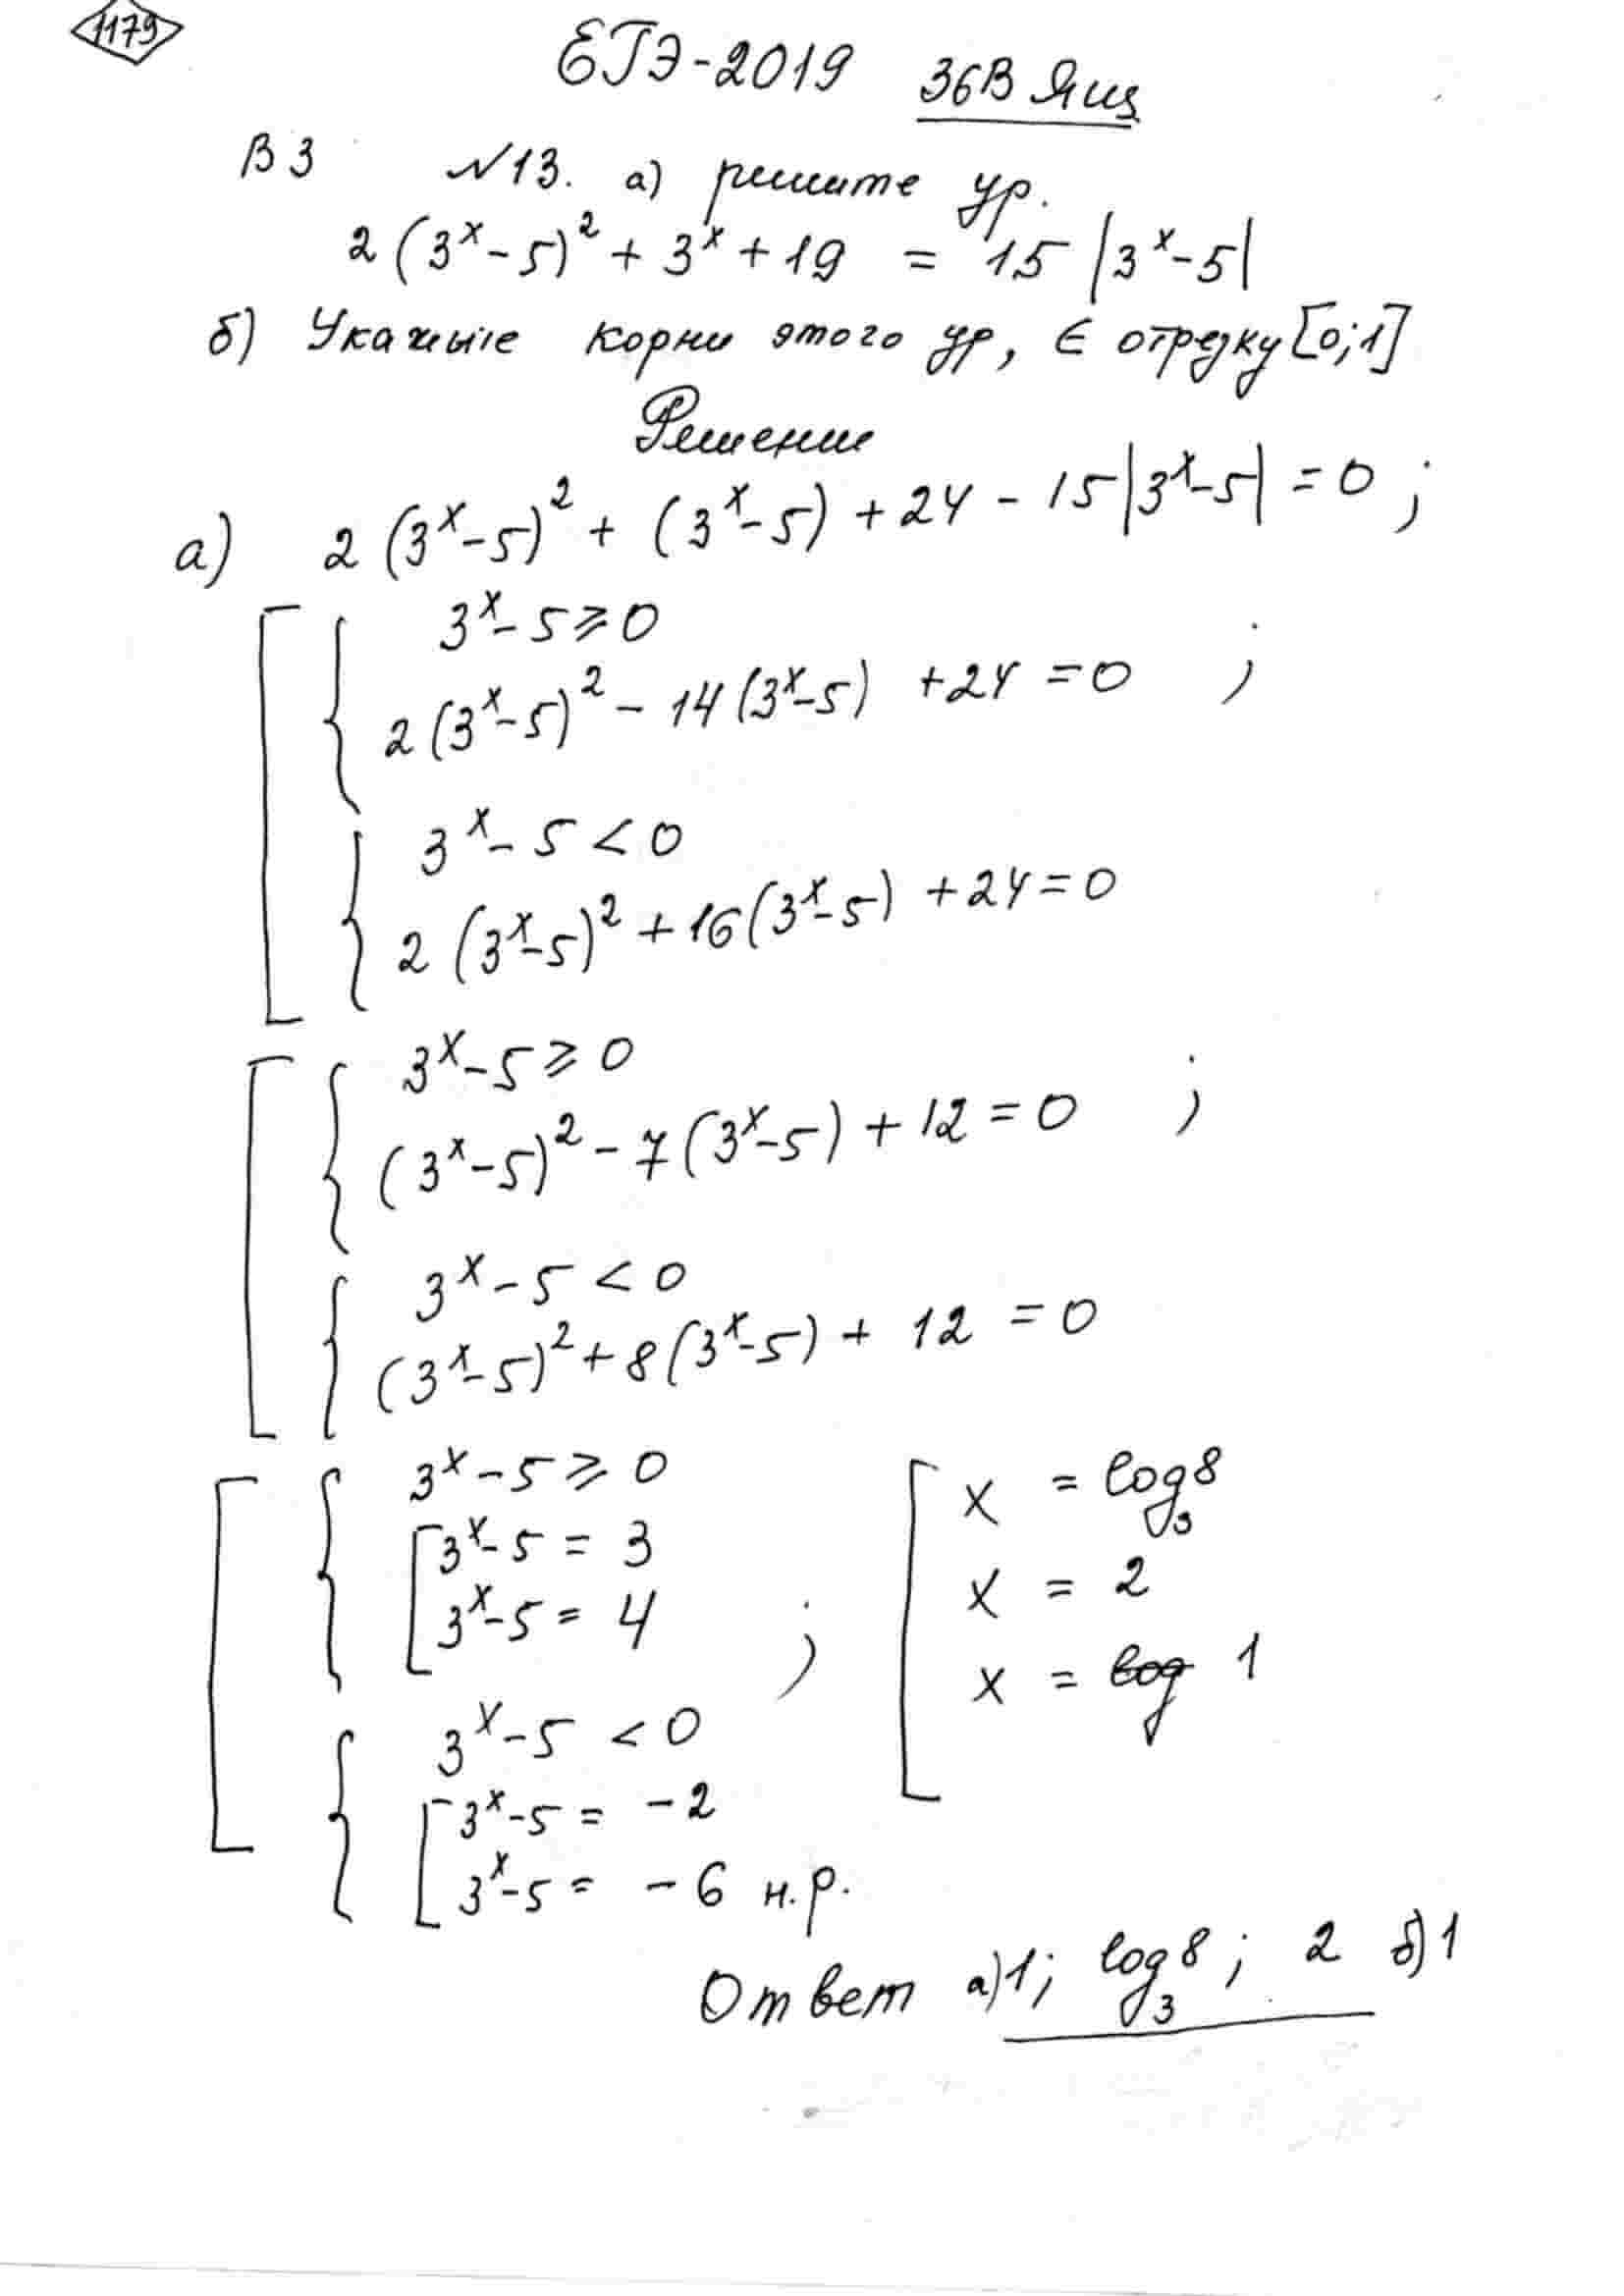 1179
ЕГЭ-2019 36В Ящ
В 3 №13. а) решите ур.
2(3^x - 5)^2 + 3^x + 19 = 15|3^x - 5|
б) Укажите корни этого ур, ∈ отрезку [0;1]
Решение
а) 2(3^x - 5)^2 + (3^x - 5) + 24 - 15|3^x - 5| = 0 ;
[ { 3^x - 5 ⩾ 0
2(3^x - 5)^2 - 14(3^x - 5) + 24 = 0 ;
{ 3^x - 5 < 0
2(3^x - 5)^2 + 16(3^x - 5) + 24 = 0
[ { 3^x - 5 ⩾ 0
(3^x - 5)^2 - 7(3^x - 5) + 12 = 0 ;
{ 3^x - 5 < 0
(3^x - 5)^2 + 8(3^x - 5) + 12 = 0
[ { 3^x - 5 ⩾ 0
[ 3^x - 5 = 3
3^x - 5 = 4 ;
{ 3^x - 5 < 0
[ 3^x - 5 = -2
3^x - 5 = -6 н.р.
[ x = log_3 8
x = 2
x = log 1
Ответ а) 1; log_3 8; 2 б) 1